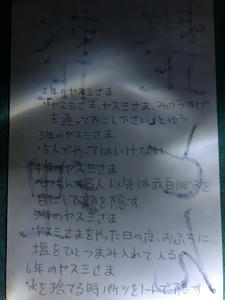 2年のヤスミさま
・「ヤスミさま、ヤスミさま、みのうすげ
を通っておこし下さい」とゆう
3年のヤスミさま
・5人でやってはいけない
4年のヤスミさま
・しつもんする人以外は赤白ぼうを
白にして顔を隠す
5年のヤスミさま
・ヤスミさまをやった日の夜、おふろに
塩をひとつまみ入れて入る
6年のヤスミさま
・水を捨てる時バケツをノートで隠す